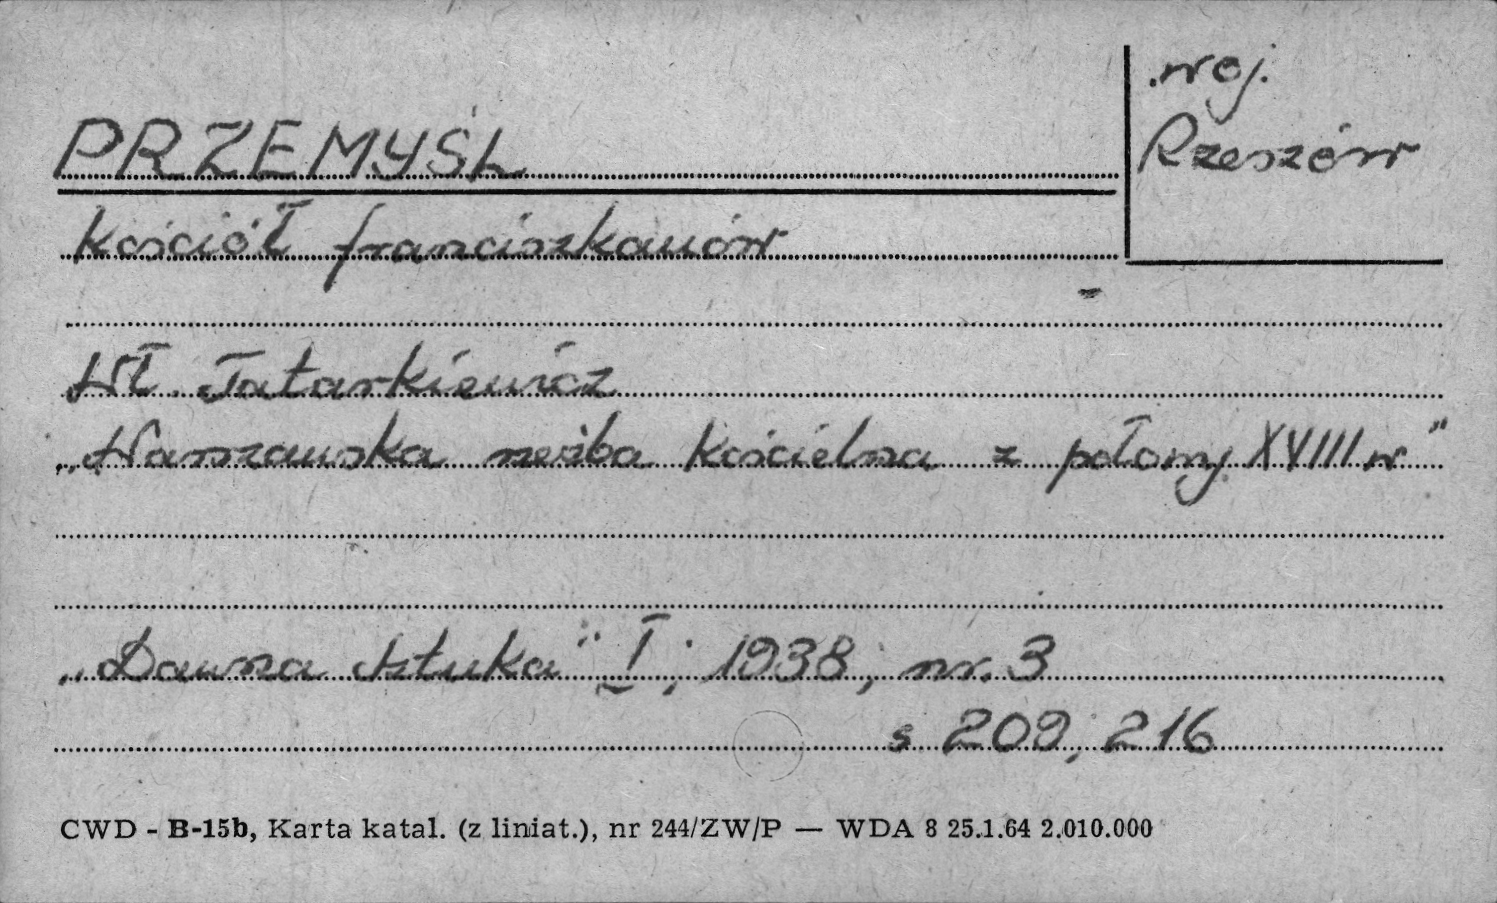 PRZEMYŚL
woj.
Rzeszów
kościół franciszkanów
Wł. Tatarkiewicz
„Warszawska rzeźba kościelna z połowy XVIII w"
„Dawna Sztuka" I; 1938, nr. 3
s 209, 216
CWD - B-15b, Karta katal. (z liniat.), nr 244/ZW/P — WDA 8 25.1.64 2.010.000